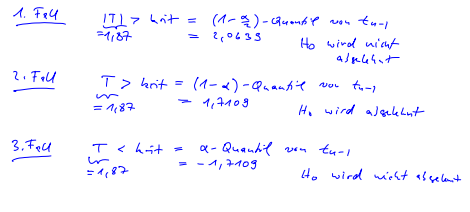 1. Fall |T| > krit = (1-α/2)-Quantil von tn-1
=1,87 = 2,0639 H0 wird nicht
abgelehnt
2. Fall T > krit = (1-α)-Quantil von tn-1
=1,87 = 1,7109 H0 wird abgelehnt
3. Fall T < krit = α-Quantil von tn-1
=1,87 = -1,7109 H0 wird nicht abgelehnt